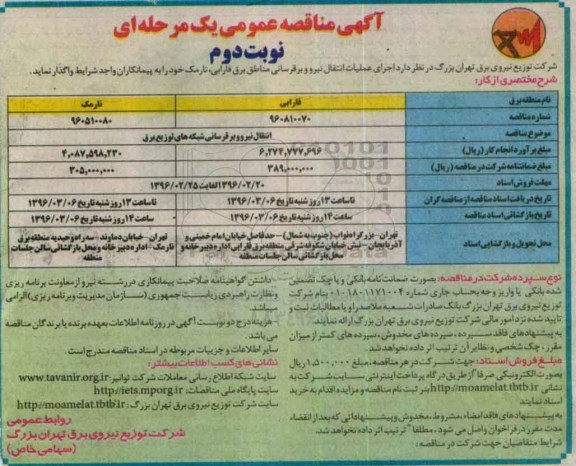 آگهی مناقصه عمومی یک مرحله ای
نوبت دوم
شرکت توزیع نیروی برق تهران بزرگ در نظر دارد اجرای عملیات انتقال نیرو و برقرسانی مناطق برق فارابی، نارمک خود را به پیمانکاران واجد شرایط واگذار نماید.
شرح مختصری از کار:
نام منطقه برق فارابی نارمک
شماره مناقصه ۹۶۰۸۱۰۰۷۰ ۹۶۰۵۱۰۰۸۰
موضوع مناقصه انتقال نیرو و برقرسانی شبکه های توزیع برق
مبلغ برآورد انجام کار (ریال) ۶,۲۷۴,۷۷۷,۶۹۶ ۴,۰۸۷,۵۹۸,۲۳۰
مبلغ ضمانتنامه شرکت در مناقصه (ریال) ۳۸۹,۰۰۰,۰۰۰ ۳۰۵,۰۰۰,۰۰۰
مهلت فروش اسناد ۱۳۹۶/۰۲/۲۰ لغایت ۱۳۹۶/۰۲/۲۵
تاریخ دریافت اسناد مناقصه از مناقصه گران تا ساعت ۱۳ روز شنبه تاریخ ۱۳۹۶/۰۳/۰۶ تا ساعت ۱۳ روز شنبه تاریخ ۱۳۹۶/۰۳/۰۶
تاریخ بازگشائی اسناد مناقصه ساعت ۱۴ روز شنبه تاریخ ۱۳۹۶/۰۳/۰۶ ساعت ۱۴ روز شنبه تاریخ ۱۳۹۶/۰۳/۰۶
محل تحویل و بازگشایی اسناد
تهران - بزرگراه نواب (جنوب به شمال) - حدفاصل خیابان امام خمینی و
آذربایجان - نبش خیابان شکوفه شرقی منطقه برق فارابی اداره دبیرخانه و
محل بازگشائی سالن جلسات منطقه
تهران - خیابان دماوند - سه راه وحیدیه منطقه برق
نارمک - اداره دبیرخانه و محل بازگشائی سالن جلسات
منطقه
نوع سپرده شرکت در مناقصه: بصورت ضمانت نامه بانکی و یا چک تضمین
شده بانکی یا واریز وجه بحساب جاری شماره ۰۱۰۱۸۰۱۱۷۱۰۰۴ بنام شرکت
توزیع نیروی برق تهران بزرگ بانک صادرات شعبه ملاصدرا و یا مطالبات ثبت و
تایید شده نزد امور مالی شرکت توزیع نیروی برق تهران بزرگ ارائه نمایند.
به پیشنهادهای فاقد سپرده، سپرده های مخدوش، سپرده های کمتر از میزان
مقرر، چک شخصی و نظایر آن ترتیب اثر داده نخواهد شد.
مبلغ فروش اسناد: جهت شرکت در هر مناقصه، مبلغ ۱,۵۰۰,۰۰۰ ریال
بصورت الکترونیکی صرفاً از طریق درگاه پرداخت اینترنتی سایت شرکت به
نشانی http://moamelat.tbtb.ir بنر ثبت نام مناقصه و مزایده اقدام به خرید
اسناد نمایند
به پیشنهادهای فاقد امضاء، مشروط، مخدوش و پیشنهاداتی که بعد از انقضاء
مدت مقرر در فراخوان واصل می شود، مطلقاً ترتیب اثر داده نخواهد شد.
شرایط متقاضیان جهت شرکت در مناقصه:
- داشتن گواهینامه صلاحیت پیمانکاری در رشته نیرو از معاونت برنامه ریزی
و نظارت راهبردی ریاست جمهوری (سازمان مدیریت و برنامه ریزی) الزامی
میباشد
- هزینه درج دو نوبت آگهی در روزنامه اطلاعات بعهده برنده یا برندگان مناقصه
می باشد.
سایر اطلاعات و جزییات مربوطه در اسناد مناقصه مندرج است.
نشانی های کسب اطلاعات بیشتر:
سایت شبکه اطلاع رسانی معاملات شرکت توانیر: www.tavanir.org.ir
سایت پایگاه ملی مناقصات: http://iets.mporg.ir
سایت شرکت توزیع نیروی برق تهران بزرگ: http://moamelat.tbtb.ir
روابط عمومی
شرکت توزیع نیروی برق تهران بزرگ
(سهامی خاص)